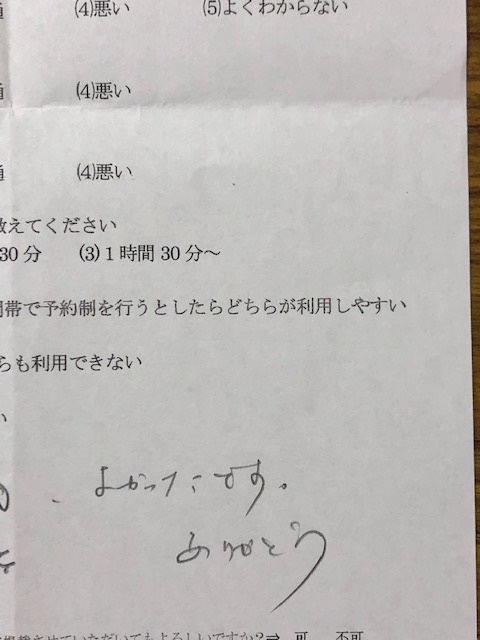 (4)悪い (5)よくわからない
(4)悪い
(4)悪い
教えてください
30分 (3)1時間30分～
帯で予約制を行うとしたらどちらが利用しやすい
らも利用できない
い
、よかったです。
ありがとう
掲載させていただいてもよろしいですか?⇒ 可 不可